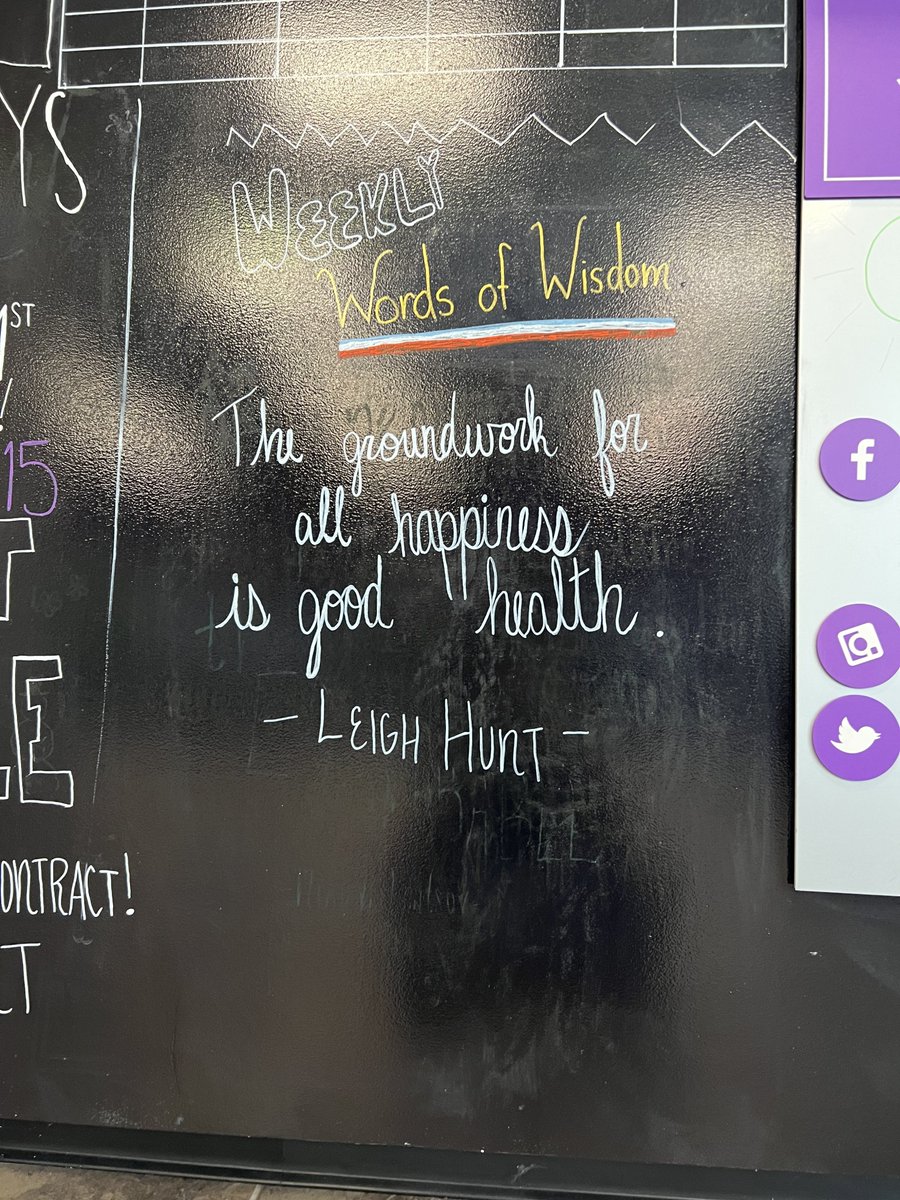 YS
ST
15
T
LE
ONTRACT!
CT
WEEKLY
Words of Wisdom
The groundwork for
all happiness
is good health.
- LEIGH HUNT -